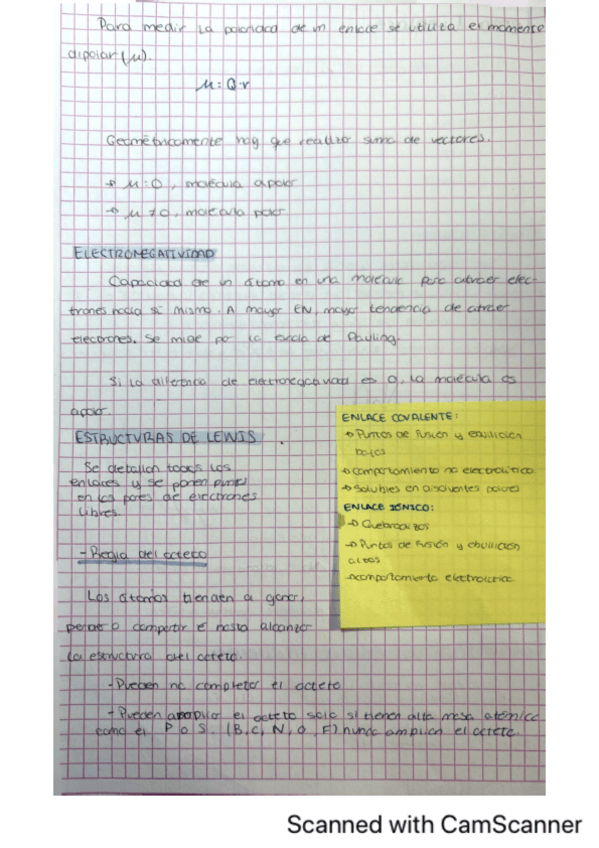 Para medir la polaridad de un enlace se utiliza el momento
dipolar (μ).
μ = Q·r
Geométricamente hay que realizar suma de vectores.
→ μ = 0, molécula apolar
→ μ ≠ 0, molécula polar
ELECTRONEGATIVIDAD
Capacidad de un átomo en una molécula para atraer elec-
trones hacia sí mismo. A mayor EN, mayor tendencia de atraer
electrones. Se mide por la escala de Pauling.
Si la diferencia de electronegatividad es 0, la molécula es
apolar.
ESTRUCTURAS DE LEWIS
Se detallan todos los
enlaces y se ponen puntos
en los pares de electrones
libres.
- Regla del octeto
Los átomos tienden a ganar,
perder o compartir é hasta alcanzar
la estructura del octeto.
- Pueden no completar el octeto
- Pueden ampliar el octeto solo si tienen alta masa atómica
como el P o S. (B, C, N, O, F) nunca amplían el octeto.
ENLACE COVALENTE:
→ Puntos de fusión y ebullición
bajos
→ Comportamiento no electrolítico
→ Solubles en disolventes polares
ENLACE IÓNICO:
→ Quebradizos
→ Puntos de fusión y ebullición
altos
→ comportamiento electrolítico
Scanned with CamScanner